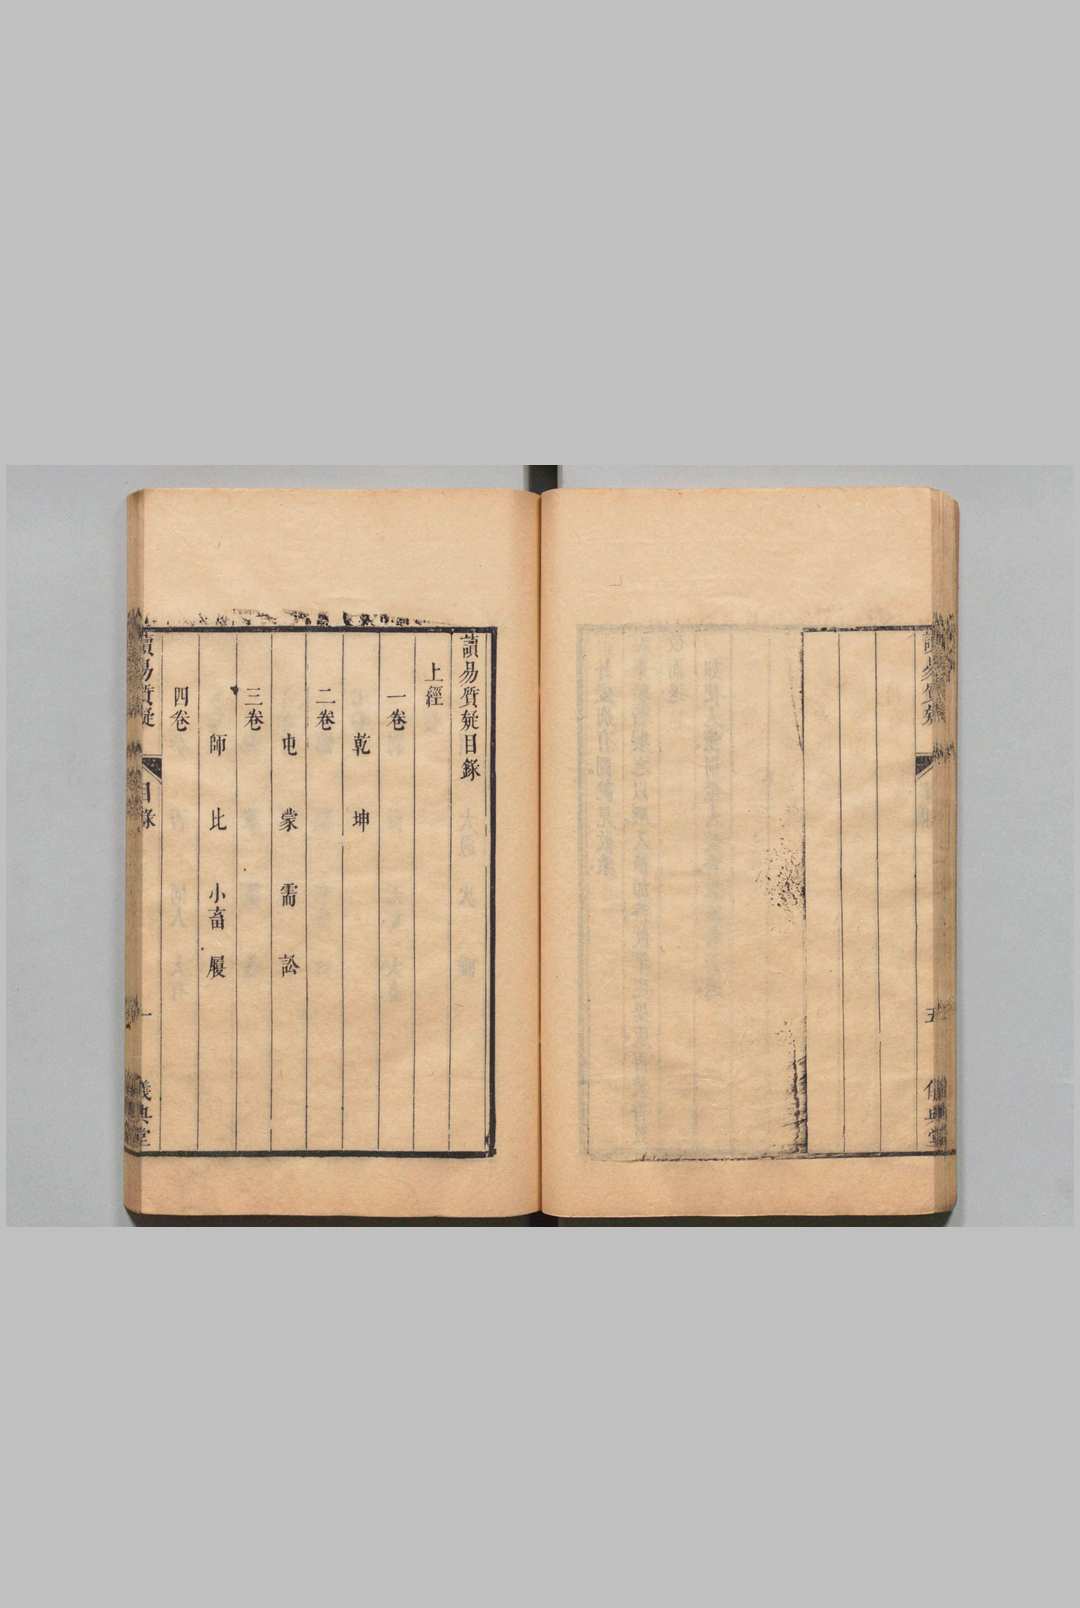 讀易質疑
五
儀典堂
讀易質疑目錄
上經
一卷
乾 坤
二卷
屯 蒙 需 訟
三卷
師 比 小畜 履
四卷
讀易質疑
目錄
一
儀典堂